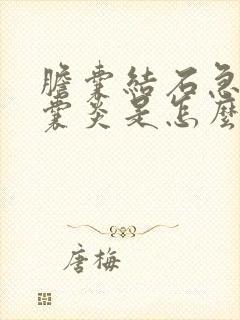 膽囊結石急
囊炎是怎麼
唐梅